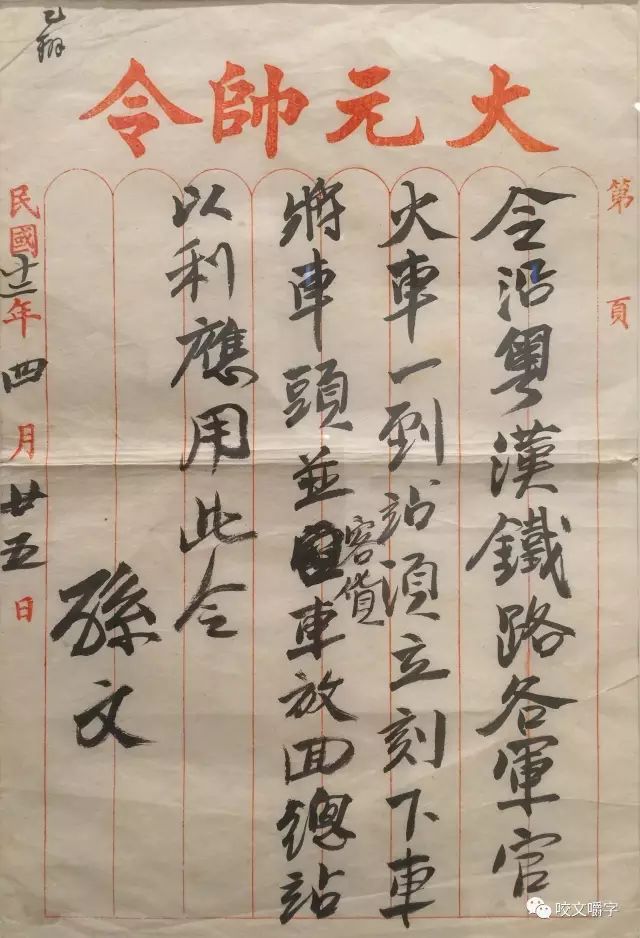 大元帥令
第 頁
令沿粵漢鐵路各軍官
火車一到站須立刻下車
將車頭並客貨車放回總站
以利應用此令
孫文
民國十二年四月廿五日
已辦
咬文嚼字